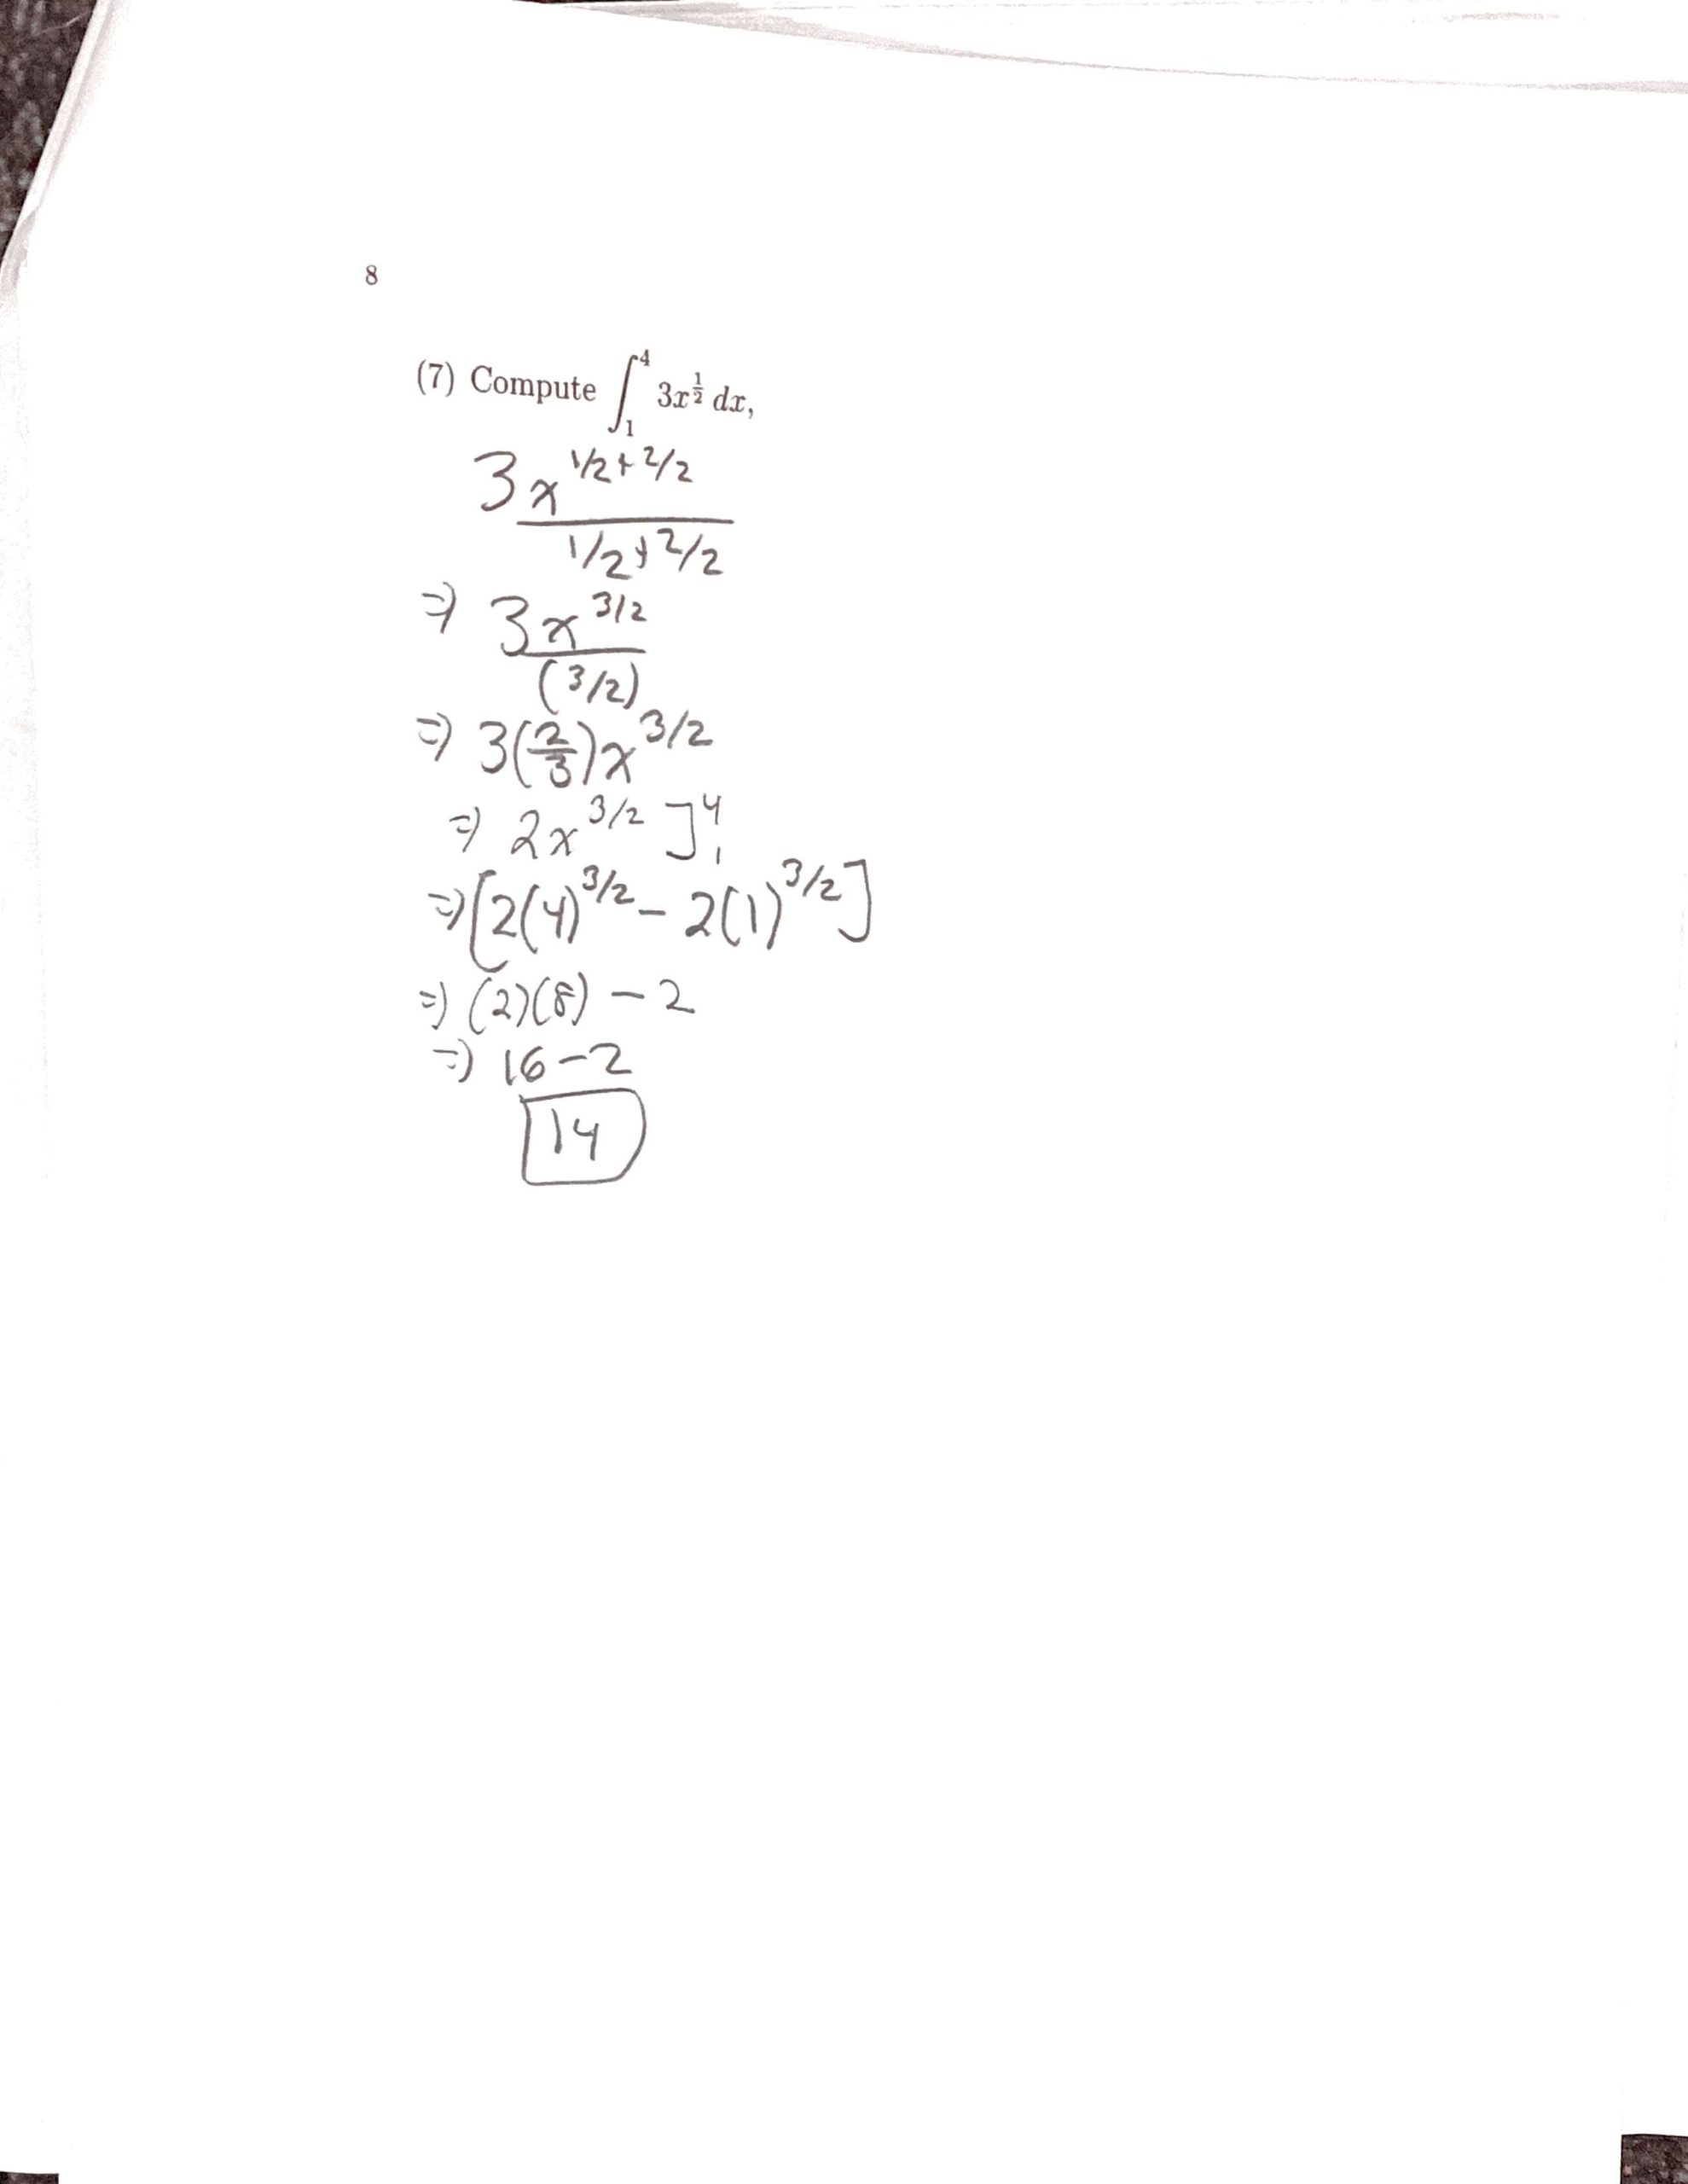 8
(7) Compute ∫₁⁴ 3x^{1/2} dx,
3x^{1/2+2/2}
1/2+2/2
⇒ 3x^{3/2}
(3/2)
⇒ 3(2/3)x^{3/2}
⇒ 2x^{3/2} ]₁⁴
⇒ [2(4)^{3/2} - 2(1)^{3/2}]
⇒ (2)(8) - 2
⇒ 16-2
14